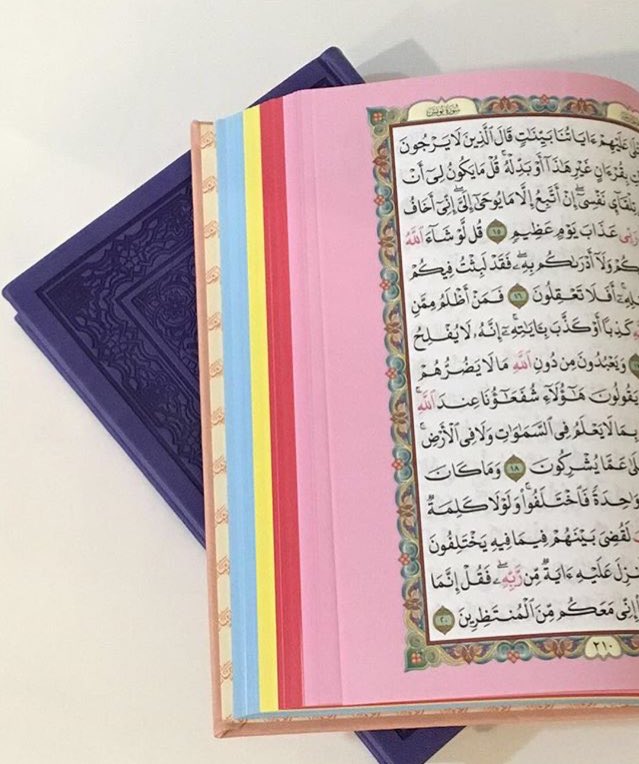 سُورَةُ يُونُسَ
عَلَيْهِمْ ءَايَاتُنَا بَيِّنَٰتٍ قَالَ ٱلَّذِينَ لَا يَرْجُونَ
بِقُرْءَانٍ غَيْرِ هَٰذَآ أَوْ بَدِّلْهُ ۚ قُلْ مَا يَكُونُ لِىٓ أَنْ
تِلْقَآئِ نَفْسِىٓ ۖ إِنْ أَتَّبِعُ إِلَّا مَا يُوحَىٰٓ إِلَىَّ ۖ إِنِّىٓ أَخَافُ
رَبِّى عَذَابَ يَوْمٍ عَظِيمٍ ١٥ قُل لَّوْ شَآءَ ٱللَّهُ
وَلَآ أَدْرَىٰكُم بِهِۦ ۖ فَقَدْ لَبِثْتُ فِيكُمْ
أَفَلَا تَعْقِلُونَ ١٦ فَمَنْ أَظْلَمُ مِمَّنِ
كَذِبًا أَوْ كَذَّبَ بِـَٔايَٰتِهِۦٓ ۚ إِنَّهُۥ لَا يُفْلِحُ
وَيَعْبُدُونَ مِن دُونِ ٱللَّهِ مَا لَا يَضُرُّهُمْ
يَقُولُونَ هَٰٓؤُلَآءِ شُفَعَٰٓؤُنَا عِندَ ٱللَّهِ ۚ
بِمَا لَا يَعْلَمُ فِى ٱلسَّمَٰوَٰتِ وَلَا فِى ٱلْأَرْضِ ۚ
عَمَّا يُشْرِكُونَ ١٨ وَمَا كَانَ
وَٰحِدَةً فَٱخْتَلَفُوا۟ ۚ وَلَوْلَا كَلِمَةٌ
لَقُضِىَ بَيْنَهُمْ فِيمَا فِيهِ يَخْتَلِفُونَ
نزِلَ عَلَيْهِ ءَايَةٌ مِّن رَّبِّهِۦ ۖ فَقُلْ إِنَّمَا
إِنِّى مَعَكُم مِّنَ ٱلْمُنتَظِرِينَ ٢٠
٢١٠